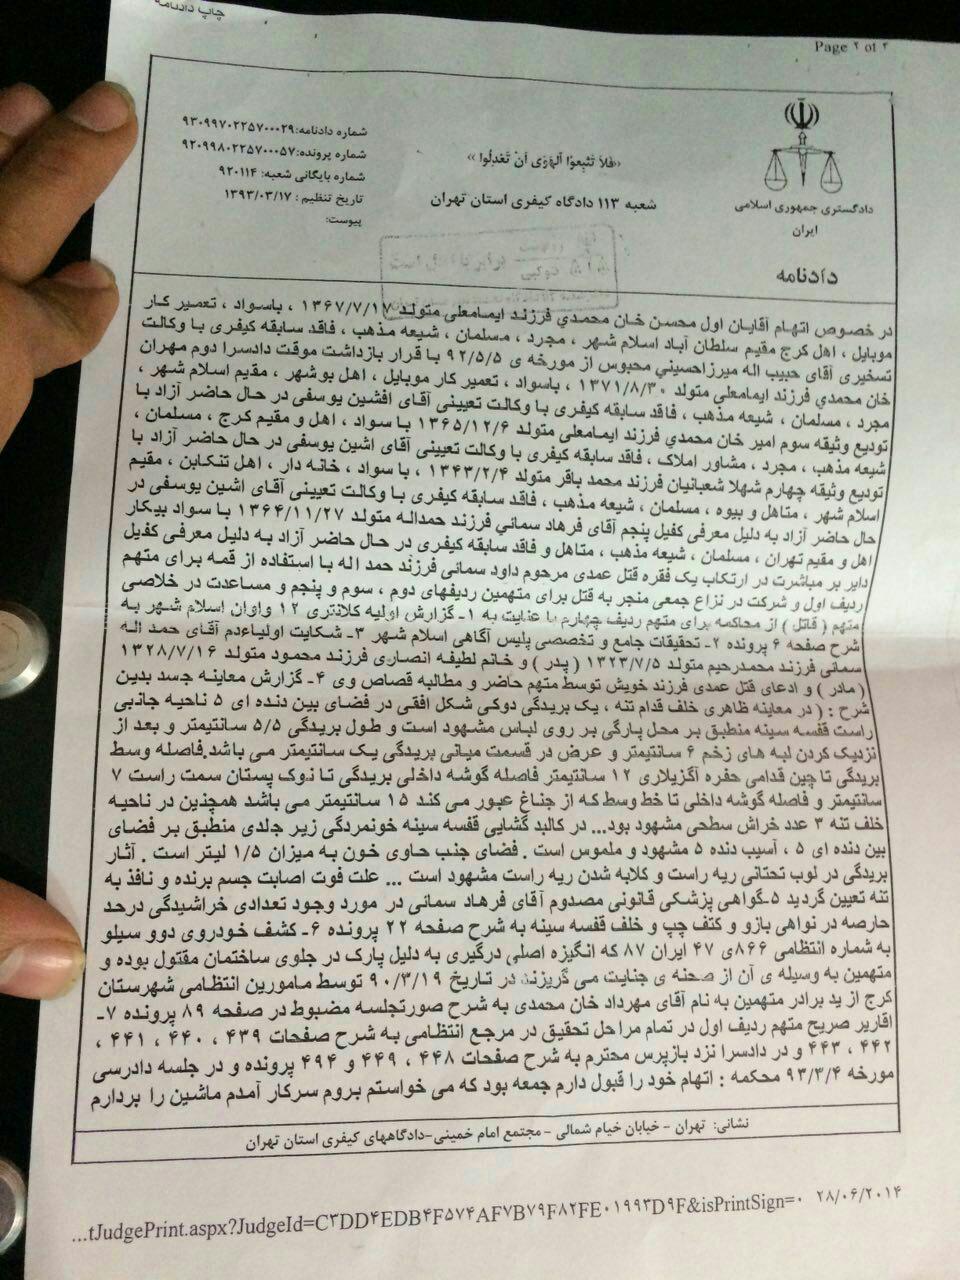 چاپ دادنامه
Page ۲ of ۴
شماره دادنامه:۹۳۰۹۹۷۰۲۲۵۷۰۰۰۲۹
شماره پرونده:۹۲۰۹۹۸۰۲۲۵۷۰۰۰۵۷
شماره بایگانی شعبه: ۹۲۰۱۱۴
تاریخ تنظیم : ۱۳۹۳/۰۳/۱۷
پیوست:
«فَلا تَتَّبِعوُا الْهَوَى اَنْ تَعْدِلُوا »
شعبه ۱۱۳ دادگاه کیفری استان تهران
دادگستری جمهوری اسلامی
ایران
دادنامه
در خصوص اتهام آقایان اول محسن خان محمدي فرزند ایمامعلی متولد ۱۳۶۷/۷/۱۷ ، باسواد ، تعمیر کار
موبایل ، اهل کرج مقیم سلطان آباد اسلام شهر ، مجرد ، مسلمان ، شیعه مذهب ، فاقد سابقه کیفری با وکالت
تسخیری آقای حبیب اله میرزاحسیني محبوس از مورخه ی ۹۲/۵/۵ با قرار بازداشت موقت دادسرا دوم مهران
خان محمدي فرزند ایمامعلی متولد ۱۳۷۱/۸/۳۰ ، باسواد ، تعمیر کار موبایل ، اهل بوشهر ، مقیم اسلام شهر ،
مجرد ، مسلمان ، شیعه مذهب ، فاقد سابقه کیفری با وکالت تعیینی آقای افشین یوسفی در حال حاضر آزاد با
تودیع وثیقه سوم امیر خان محمدي فرزند ایمامعلی متولد ۱۳۶۵/۱۲/۶ با سواد ، اهل و مقیم کرج ، مسلمان ،
شیعه مذهب ، مجرد ، مشاور املاک ، فاقد سابقه کیفری با وکالت تعیینی آقای اشین یوسفی در حال حاضر آزاد با
تودیع وثیقه چهارم شهلا شعبانیان فرزند محمد باقر متولد ۱۳۴۳/۲/۴ ، با سواد ، خانه دار ، اهل تنکابن ، مقیم
اسلام شهر ، متاهل و بیوه ، مسلمان ، شیعه مذهب ، فاقد سابقه کیفری با وکالت تعیینی آقای اشین یوسفی در
حال حاضر آزاد به دلیل معرفی کفیل پنجم آقای فرهاد سمائي فرزند حمداله متولد ۱۳۶۴/۱۱/۲۷ با سواد بیکار
اهل و مقیم تهران ، مسلمان ، شیعه مذهب ، متاهل و فاقد سابقه کیفری در حال حاضر آزاد به دلیل معرفی کفیل
دایر بر مباشرت در ارتکاب یک فقره قتل عمدی مرحوم داود سمائی فرزند حمد اله با استفاده از قمه برای متهم
ردیف اول و شرکت در نزاع جمعی منجر به قتل برای متهمین ردیفهای دوم ، سوم و پنجم و مساعدت در خلاصی
متهم ( قاتل ) از محاکمه برای متهم ردیف چهارم با عنایت به ۱- گزارش اولیه کلانتری ۱۲ واوان اسلام شهر به
شرح صفحه ۶ پرونده ۲- تحقیقات جامع و تخصصی پلیس آگاهی اسلام شهر ۳- شکایت اولیاءدم آقای حمد اله
سمائی فرزند محمدرحیم متولد ۱۳۲۳/۷/۵ ( پدر ) و خانم لطیفه انصاری فرزند محمود متولد ۱۳۲۸/۷/۱۶
( مادر ) و ادعای قتل عمدی فرزند خویش توسط متهم حاضر و مطالبه قصاص وی ۴- گزارش معاینه جسد بدین
شرح : ( در معاینه ظاهری خلف قدام تنه ، یک بریدگی دوکی شکل افقی در فضای بین دنده ای ۵ ناحیه جانبی
راست قفسه سینه منطبق بر محل پارگی بر روی لباس مشهود است و طول بریدگی ۵/۵ سانتیمتر و بعد از
نزدیک کردن لبه های زخم ۶ سانتیمتر و عرض در قسمت میانی بریدگی یک سانتیمتر می باشد.فاصله وسط
بریدگی تا چین قدامی حفره آگزیلاری ۱۲ سانتیمتر فاصله گوشه داخلی بریدگی تا نوک پستان سمت راست ۷
سانتیمتر و فاصله گوشه داخلی تا خط وسط که از جناغ عبور می کند ۱۵ سانتیمتر می باشد همچنین در ناحیه
خلف تنه ۳ عدد خراش سطحی مشهود بود... در کالبد گشایی قفسه سینه خونمردگی زیر جلدی منطبق بر فضای
بین دنده ای ۵ ، آسیب دنده ۵ مشهود و ملموس است . فضای جنب حاوی خون به میزان ۱/۵ لیتر است . آثار
بریدگی در لوب تحتانی ریه راست و کلاپه شدن ریه راست مشهود است ... علت فوت اصابت جسم برنده و نافذ به
تنه تعیین گردید ۵-گواهی پزشکی قانونی مصدوم آقای فرهاد سمائی در مورد وجود تعدادی خراشیدگی درحد
حارصه در نواهی بازو و کتف چپ و خلف قفسه سینه به شرح صفحه ۲۲ پرونده ۶- کشف خودروی دوو سیلو
به شماره انتظامی ۸۶۶ی ۴۷ ایران ۸۷ که انگیزه اصلی درگیری به دلیل پارک در جلوی ساختمان مقتول بوده و
متهمین به وسیله ی آن از صحنه ی جنایت می گریزند در تاریخ ۹۰/۳/۱۹ توسط مامورین انتظامی شهرستان
کرج از ید برادر متهمین به نام آقای مهرداد خان محمدی به شرح صورتجلسه مضبوط در صفحه ۸۹ پرونده ۷-
اقاریر صریح متهم ردیف اول در تمام مراحل تحقیق در مرجع انتظامی به شرح صفحات ۴۳۹ ، ۴۴۰ ، ۴۴۱ ،
۴۴۲ ، ۴۴۳ و در دادسرا نزد بازپرس محترم به شرح صفحات ۴۴۸ ، ۴۴۹ و ۴۹۴ پرونده و در جلسه دادرسی
مورخه ۹۳/۳/۴ محکمه : اتهام خود را قبول دارم جمعه بود که می خواستم بروم سرکار آمدم ماشین را بردارم
نشانی: تهران - خیابان خیام شمالی - مجتمع امام خمینی-دادگاههای کیفری استان تهران
...tJudgePrint.aspx?JudgeId=C۳DD۴EDB۴F۵۷۴AF۷B۷۹F۸۲FE۰۱۹۹۳D۹F&isPrintSign=۰ ۲۸/۰۶/۲۰۱۴